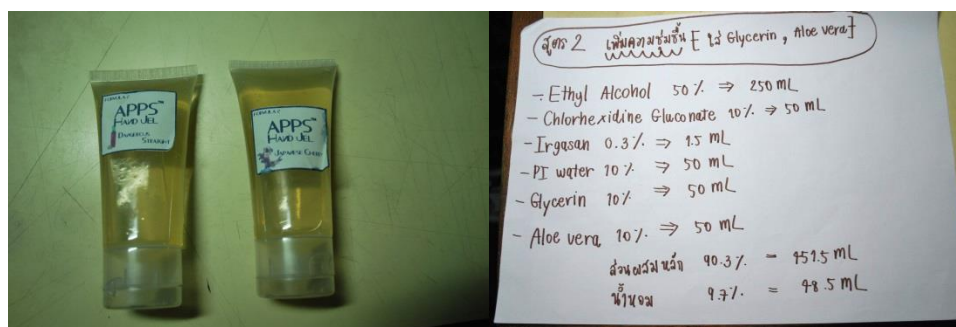 APPS™
HAND JEL
APPS™
HAND JEL
JAPANESE CHERRY
สูตร 2 เพิ่มความชุ่มชื้น [ใส่ Glycerin, Aloe vera]
- Ethyl Alcohol 50% ⇒ 250 mL
- Chlorhexidine Gluconate 10% ⇒ 50 mL
- Irgasan 0.3% ⇒ 1.5 mL
- PI water 10% ⇒ 50 mL
- Glycerin 10% ⇒ 50 mL
- Aloe vera 10% ⇒ 50 mL
ส่วนผสมหลัก 90.3% - 451.5 mL
น้ำหอม 9.7% = 48.5 mL